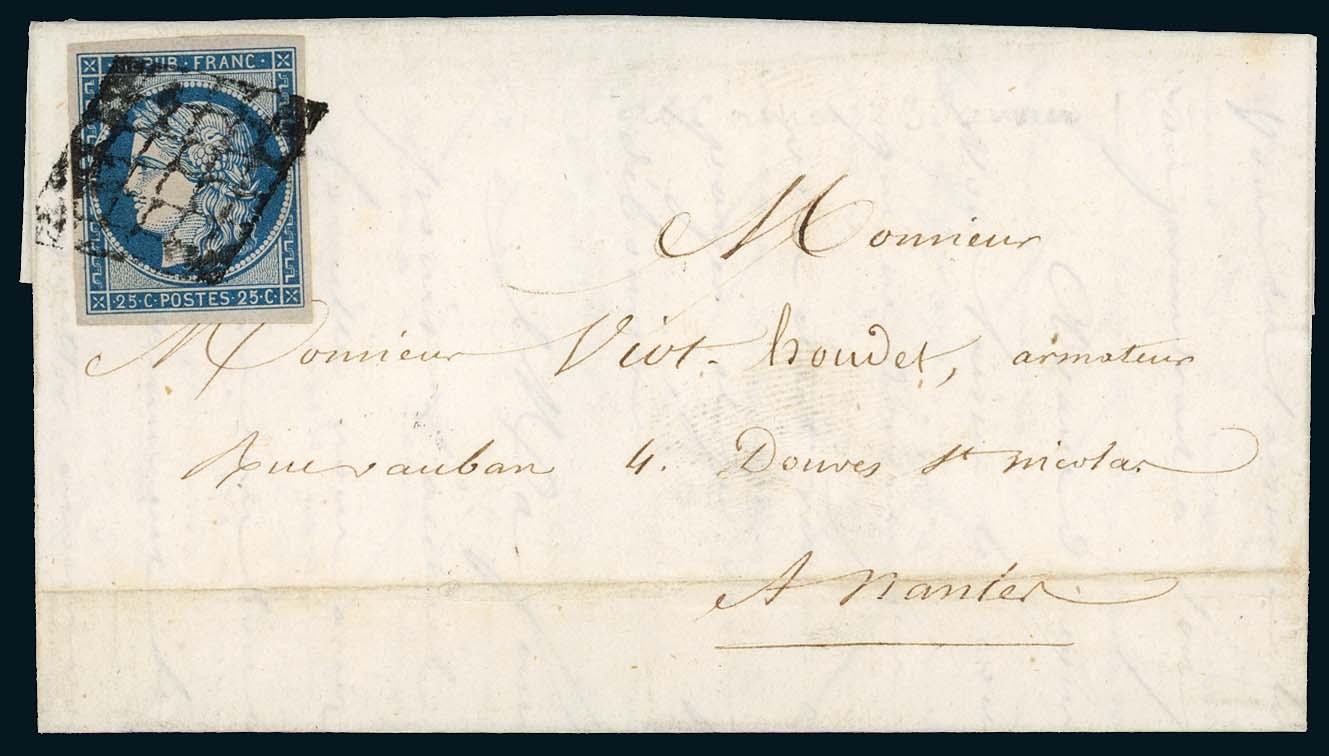 REPUB. FRANC.
25·C·POSTES·25·C
Monsieur
Monsieur Viot-houdet, armateur
Rue vauban 4. Douves St nicolas
A Nantes